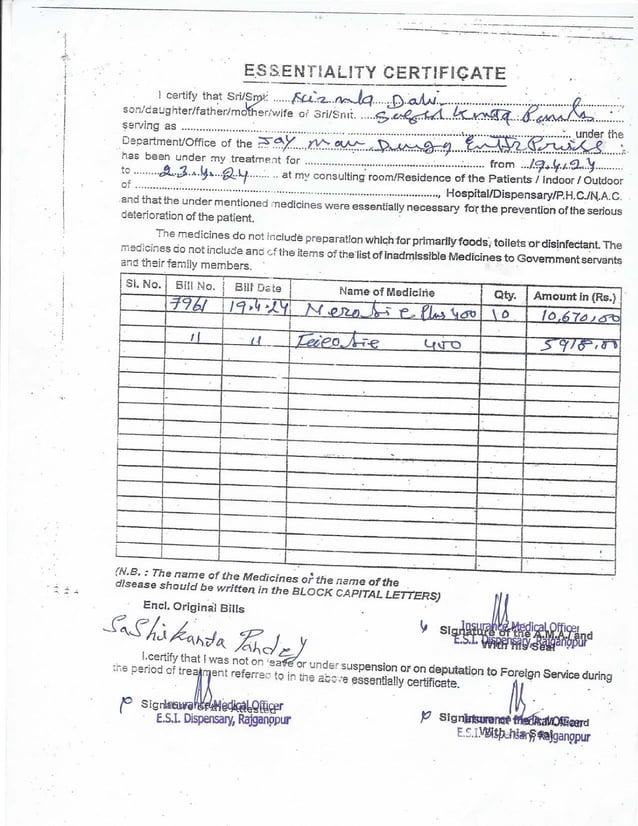 ESSENTIALITY CERTIFICATE
I certify that Sri/Smt. Devi
son/daughter/father/mother/wife of Sri/Smt.
serving as under the
Department/Office of the Jay Maa Durga
has been under my treatment for from 19.4.24
to 23.4.24 at my consulting room/Residence of the Patients / Indoor / Outdoor
of Hospital/Dispensary/P.H.C./N.A.C.
and that the under mentioned medicines were essentially necessary for the prevention of the serious
deterioration of the patient.
The medicines do not include preparation which for primarily foods, toilets or disinfectant. The
medicines do not include and of the items of the list of Inadmissible Medicines to Government servants
and their family members.
Sl. No. Bill No. Bill Date Name of Medicine Qty. Amount in (Rs.)
7961 19.4.24 Plus 400 10 10,670,00
" " 400 5918.00
(N.B. : The name of the Medicines or the name of the
disease should be written in the BLOCK CAPITAL LETTERS)
Encl. Original Bills
Insurance Medical Officer
Signature of the A.M.A./ and
E.S.I. Dispensary, Rajganopur
With his Seal
Sashikanda Pandey
I certify that I was not on leave or under suspension or on deputation to Foreign Service during
the period of treatment referred to in the above essentially certificate.
Insurance Medical Officer
Signature of the Attested
E.S.I. Dispensary, Rajganopur
E.S.I. Dispensary, Rajganopur
With his Seal